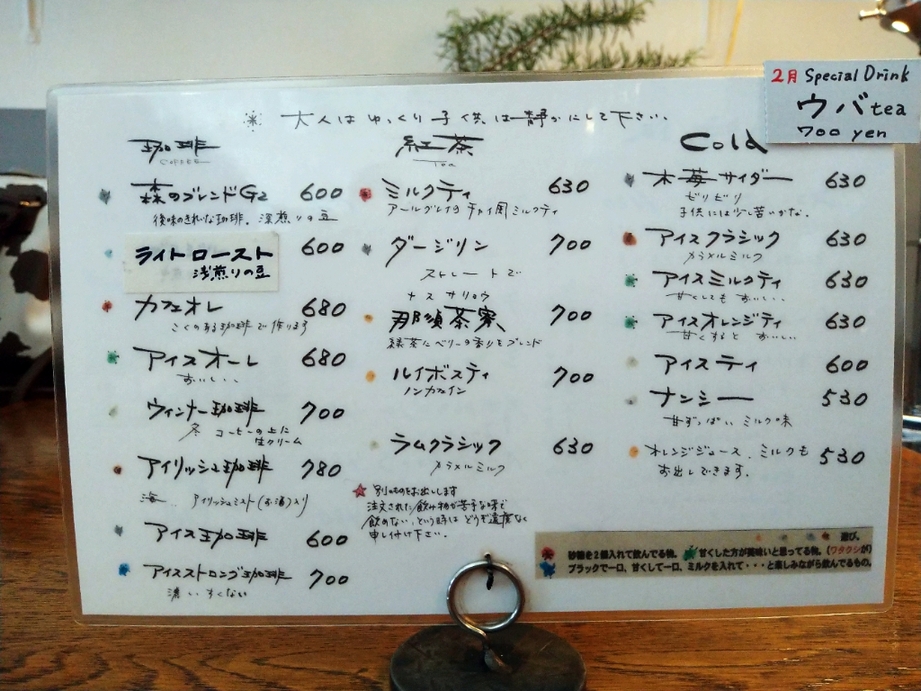 2月 Special Drink
ウバ tea
700 yen
大人は ゆっくり 子供は静かにして下さい.
珈琲
森のブレンドG2 600
後味のきれいな珈琲. 深煎りの豆
ライトロースト 600
浅煎りの豆
カフェオレ 680
こくのある珈琲で作ります
アイスオーレ 680
おいしい..
ウィンナー珈琲 700
冬 コーヒーの上に
生クリーム
アイリッシュ珈琲 780
アイリッシュミスト(お酒)入り
アイス珈琲 600
アイスストロング珈琲 700
濃い. すくない
紅茶
Tea
ミルクティ 630
アールグレイのチャイ風ミルクティ
ダージリン 700
ストレートで
ナス サリョウ
那須茶寮 700
緑茶にベリーの香りをブレンド
ルイボスティ 700
ノンカフェイン
ラムクラシック 630
カラメルミルク
別のものをお出しします
注文された飲み物が苦手な味で
飲めない. という時は どうぞ遠慮なく
申し付け下さい.
Cold
木苺サイダー 630
ピリピリ
子供には少し苦いかな.
アイスクラシック 630
カラメルミルク
アイスミルクティ 630
甘くしても おいしい..
アイスオレンジティ 630
甘くすると おいしい
アイスティ 600
ナンシー 530
甘ずっぱい ミルク味
オレンジジュース. ミルクも 530
お出しできます.
遊び。
砂糖を2個入れて飲んでる物。 甘くした方が美味いと思ってる物。(ワタクシが)
ブラックで一口、甘くして一口、ミルクを入れて・・・と楽しみながら飲んでるもの。